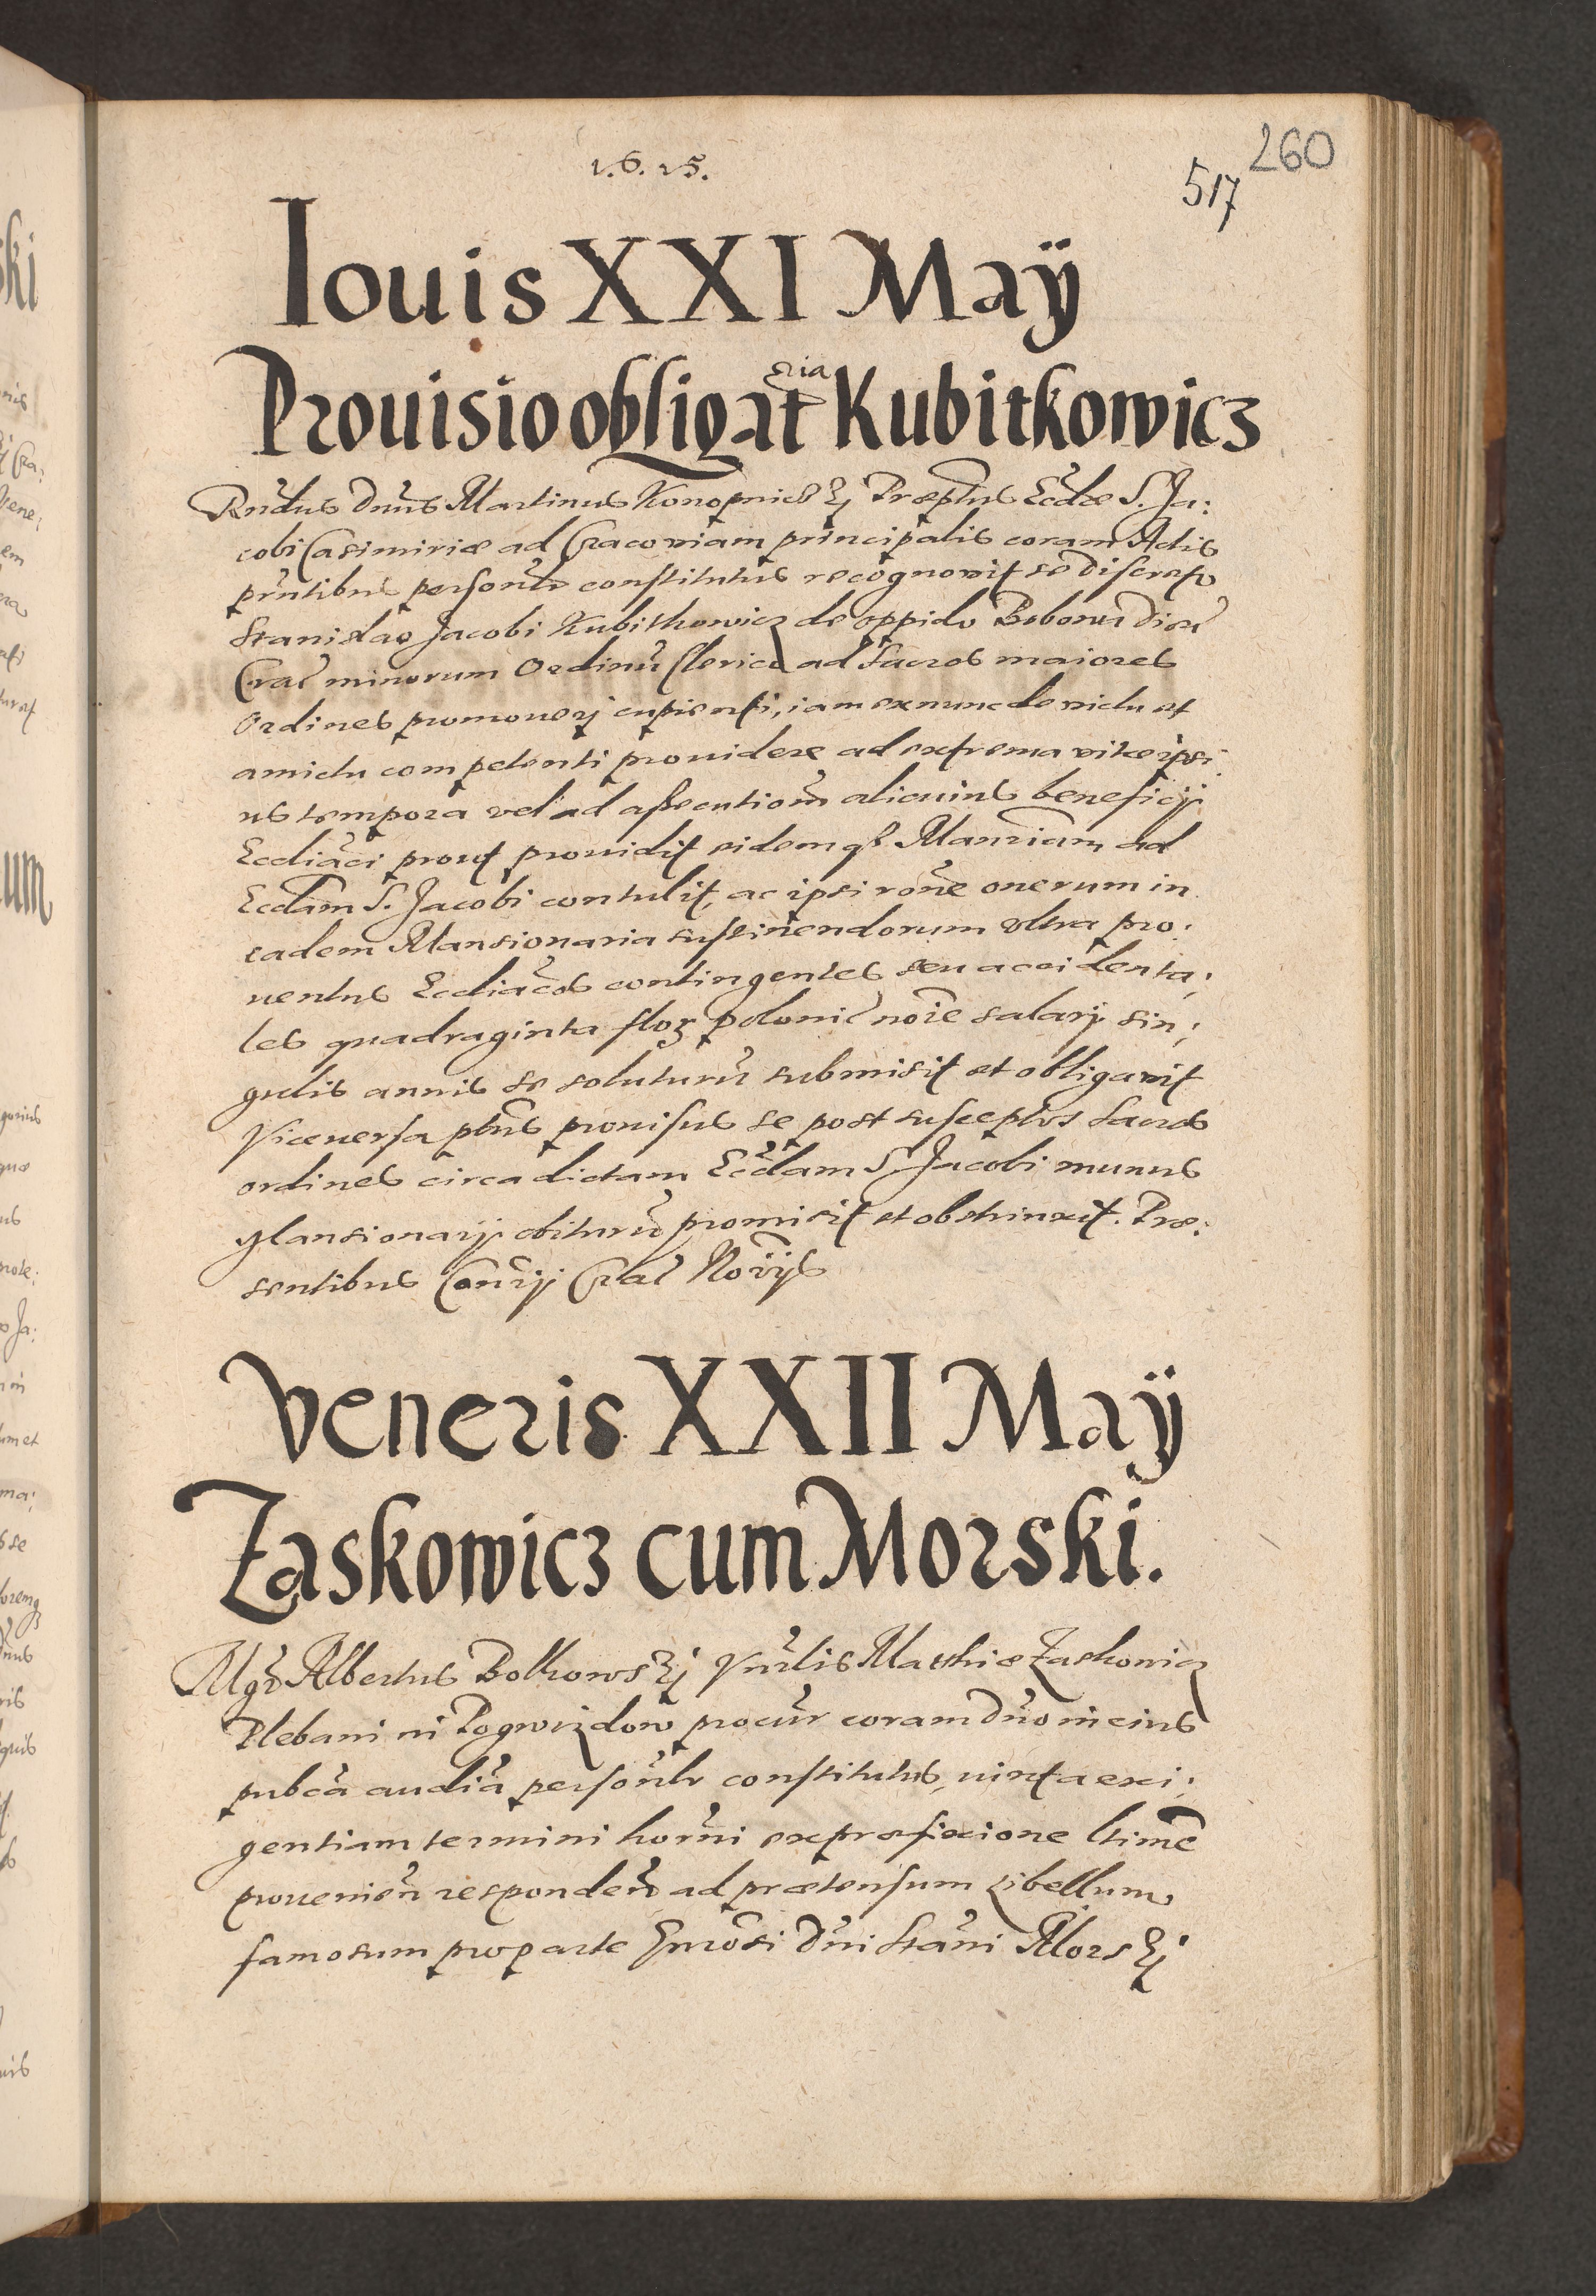 1.6.15.
260
517
Iouis XXI Maÿ
Prouisio obligatria Kubitkowicz
Rndus Dnus Martinus Konopnicski Præptus Eccliæ S. Ja:
cobi Casimiriæ ad Cracouiam principalis coram Actis
pñtibus personlr constitutus recognovit se discreto
Stanislao Jacobi Kubitkowicz de oppido Bobowa Dioc
Crac minorum Ordinũ Clerico ad Sacros maiores
Ordines promouerj cupienti, iam ex nunc de victu et
amictu competenti prouidere ad extrema vitæ ipsi
us tempora vel ad assecutionẽ alicuius beneficij
Eccliãci prout prouidit eidemqꝫ Mansriam ad
Eccliam S. Jacobi contulit, ac ipsi rõne onerum in
eadem Mansionaria sustinendorum vltra pro:
uentus Eccliãcos contingentes seu accidenta:
les quadraginta flor polonic noĩe salarij sin:
gulis annis se soluturũ submisit et obligavit
Viceuersa ptus prouisus se post susceptos Sacros
ordines circa dictam Eccliam S. Jacobi munus
Mansionarij obiturũ promisit et obstrinxit. Præ:
sentibus Consrij Crac Norijs
Veneris XXII Maÿ
Zaskowicz cum Morski.
Mgr Albertus Bolkowski Vnrlis Matthiæ Zaskowicz
Plebani in Pogwizdow procur coram Dño in eius
pubca audia personlr constitutus, iuxta exi:
gentiam termini horni ex præfixione ltime
prouenien responden ad prætensum Libellum
famosum pro parte Gnrosi Dñi Stani Morski